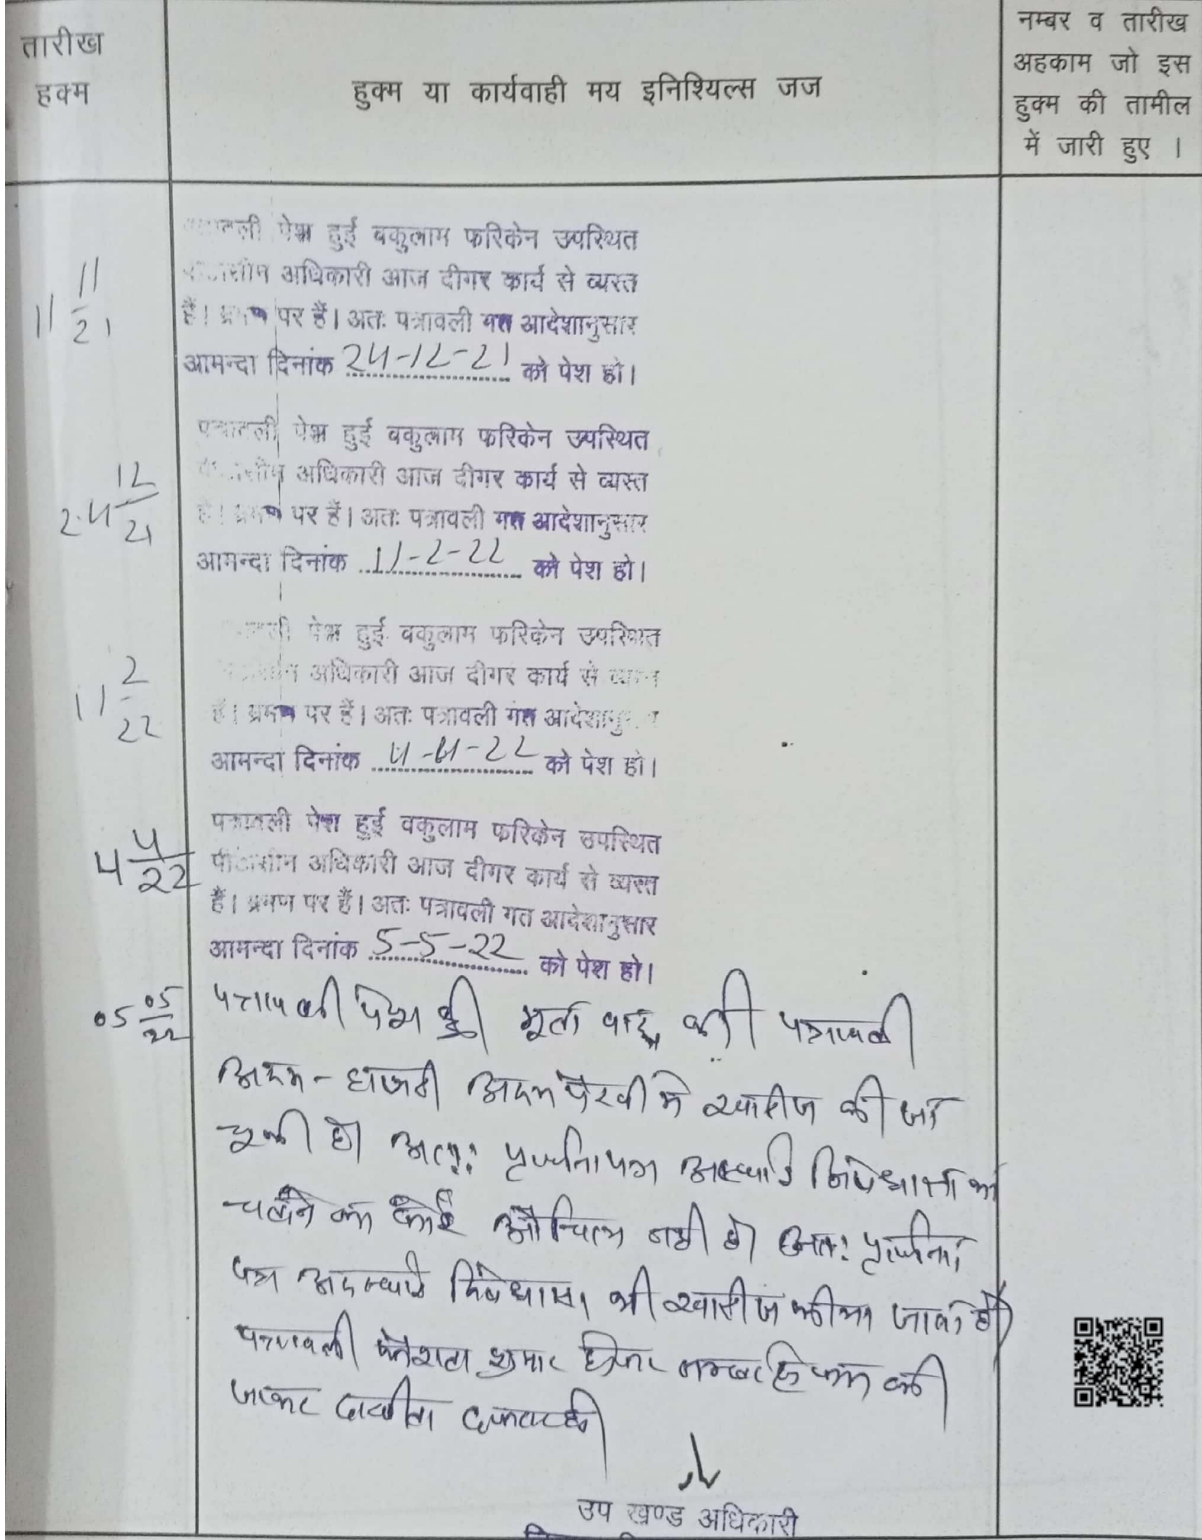 तारीख
हुक्म
हुक्म या कार्यवाही मय इनिशियल्स जज
नम्बर व तारीख
अहकाम जो इस
हुक्म की तामील
में जारी हुए ।
11 11/21
पत्रावली पेश हुई वकुलाम फरिकेन उपस्थित
पीठासीन अधिकारी आज दीगर कार्य से व्यस्त
हैं। भ्रमण पर हैं। अतः पत्रावली गत आदेशानुसार
आमन्दा दिनांक 24-12-21 को पेश हो।
24 12/21
पत्रावली पेश हुई वकुलाम फरिकेन उपस्थित
पीठासीन अधिकारी आज दीगर कार्य से व्यस्त
हैं। भ्रमण पर हैं। अतः पत्रावली गत आदेशानुसार
आमन्दा दिनांक 11-2-22 को पेश हो।
11 2/22
पत्रावली पेश हुई वकुलाम फरिकेन उपस्थित
पीठासीन अधिकारी आज दीगर कार्य से व्यस्त
हैं। भ्रमण पर हैं। अतः पत्रावली गत आदेशानुसार
आमन्दा दिनांक 4-4-22 को पेश हो।
4 4/22
पत्रावली पेश हुई वकुलाम फरिकेन उपस्थित
पीठासीन अधिकारी आज दीगर कार्य से व्यस्त
हैं। भ्रमण पर हैं। अतः पत्रावली गत आदेशानुसार
आमन्दा दिनांक 5-5-22 को पेश हो।
05 05/22
पत्रावली पेश हुई मूल वाद की पत्रावली
अदम-हाजरी अदम पैरवी मे खारीज की जा
चुकी है। अतः प्रार्थना पत्र अस्थाई निषेधाज्ञा का
चलाने का कोई औचित्य नही है। अतः प्रार्थना
पत्र अस्थाई निषेधाज्ञा भी खारीज कीया जाता है।
पत्रावली फैसला शुमार होकर नम्बर से कम की
जाकर दाखील दफतर हो।
उप खण्ड अधिकारी